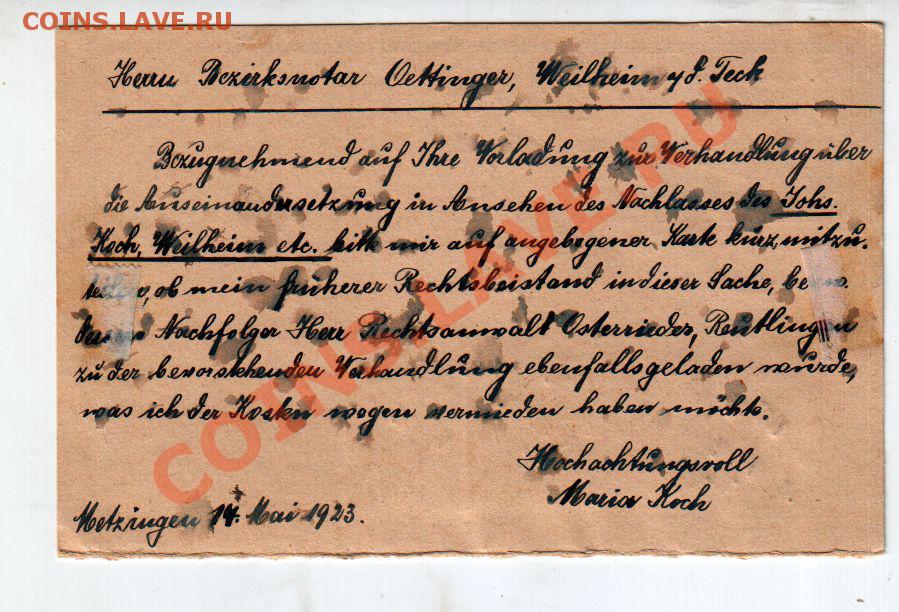 COINS.LAVE.RU
Herrn Bezirksnotar Oettinger, Weilheim y d. Teck
Bezugnehmend auf Ihre Vorladung zur Verhandlung über
die Auseinandersetzung in Ansehen des Nachlasses des Johs.
Koch, Weilheim etc. bitte mir auf angebogener Karte kurz mitzu-
teilen, ob mein früherer Rechtsbeistand in dieser Sache, bezw.
dessen Nachfolger Herr Rechtsanwalt Osterrieder, Reutlingen
zu der bevorstehenden Verhandlung ebenfalls geladen wurde,
was ich der Kosten wegen vermieden haben möchte.
Hochachtungsvoll
Maria Koch
Metzingen 14. Mai 1923.
COINS.LAVE.RU